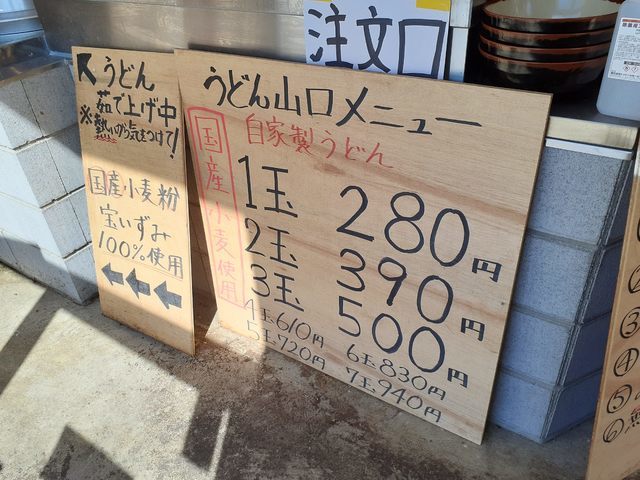 注文口
↖うどん
茹で上げ中
※熱いから気をつけて!
国産小麦粉
宝いずみ
100%使用
←←←
うどん山口メニュー
国産小麦使用
自家製うどん
1玉 280円
2玉 390円
3玉 500円
4玉610円 6玉830円
5玉720円 7玉940円
③
④
⑤
⑥